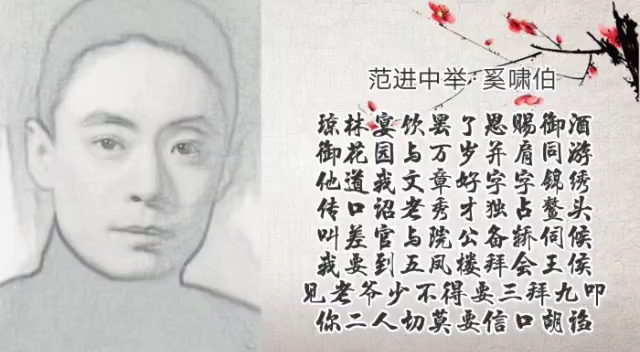 范进中举·奚啸伯
琼林宴饮罢了恩赐御酒
御花园与万岁并肩同游
他道我文章好字字锦绣
传口诏老秀才独占鳌头
叫差官与院公备轿伺候
我要到五凤楼拜会王侯
见老爷少不得要三拜九叩
你二人切莫要信口胡诌